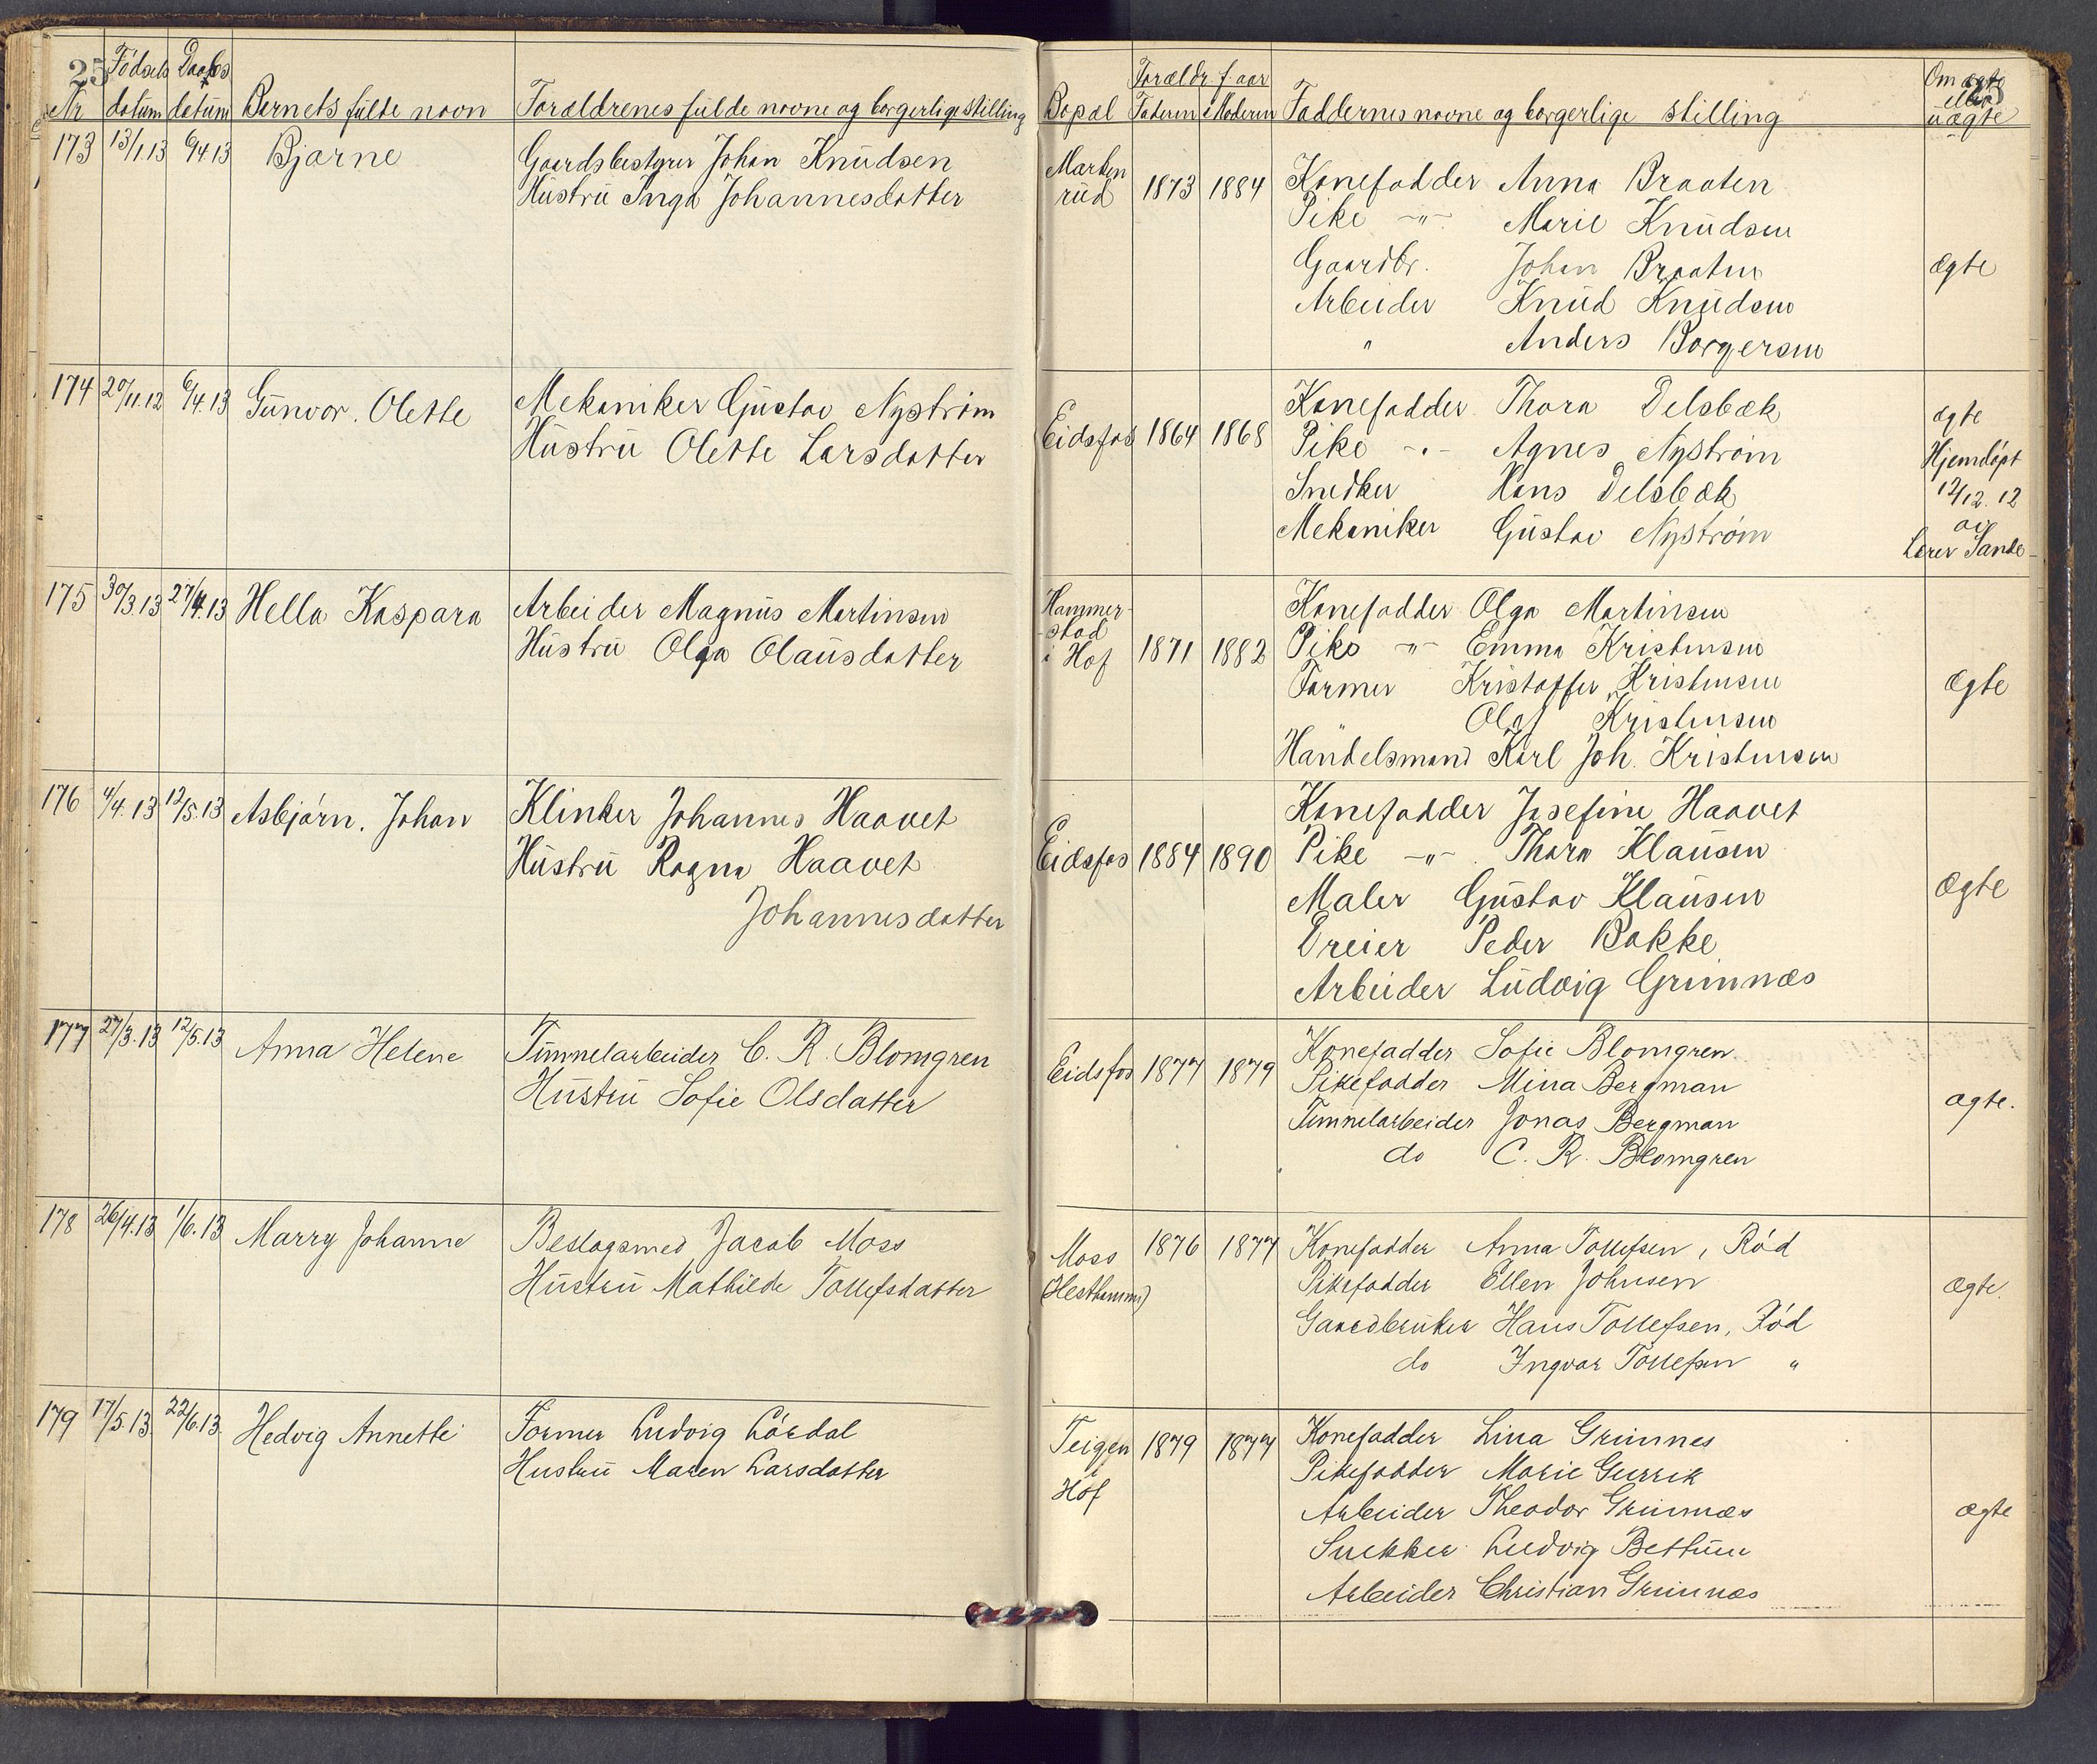 25
Fødsels Daabs
Nr datum datum Barnets fulde navn Forældrenes fulde navne og borgerlige stilling
173 13/1.13 6/4 13 Bjarne Gaardsbestyrer Johan Knudsen
Hustru Inga Johannesdatter
174 20/11.12 6/4.13 Gunvor. Olette Mekaniker Gustav Nystrøm
Hustru Olette Larsdatter
175 30/3.13 27/4.13 Hella Kaspara Arbeider Magnus Martinsen
Hustru Olga Olausdatter
176 4/4.13 12/5.13 Asbjørn. Johan Klinker Johannes Haavet
Hustru Ragna Haavet
Johannesdatter
177 27/3.13 12/5.13 Anna Helene Tømmelarbeider C. R. Blomgren
Hustru Sofie Olsdatter
178 26/4.13 1/6.13 Marry Johanne Beslagsmed Jacob Moss
Hustru Mathilde Tollefsdatter
179 17/5.13 22/6.13 Hedvig Annette Former Ludvig Lørdal
Hustru Maren Larsdatter
Forældr. f. aar Om ægte
Bopæl Faderen Moderen Faddernes navne og borgerlige stilling eller
uægte
Marken Konefadder Anna Braaten
rud 1873 1884 Pike -"- Marie Knudsen
Gaardbr. Johan Braaten ægte
Arbeider Knud Knudsen
" Anders Borgersen
Konefadder Thora Delsbæk ægte
Eidsfos 1864 1868 Pike -"- Agnes Nystrøm Hjemdøpt
Snedker Hans Delsbæk 12/12.12
Mekaniker Gustav Nystrøm av
Lærer Sande
Hammer- Konefadder Olga Martinsen
stad
i Hof 1871 1882 Pike -"- Emma Kristensen
Former Kristoffer Kristensen ægte
" Olaf Kristensen
Handelsmand Karl Joh. Kristensen
Konefadder Josefine Haavet
Eidsfos 1884 1890 Pike -"- Thora Klausen
Maler Gustav Klausen ægte
Dreier Peder Bakke
Arbeider Ludvig Grimnæs
Konefadder Sofie Blomgren
Eidsfos 1877 1879 Pikefadder Mina Bergman
Tømmelarbeider Jonas Bergman ægte.
do C. R. Blomgren
Moss 1876 1877 Konefadder Anna Tollefsen, Rød
(Hesthammer) Pikefadder Ellen Johnsen ægte.
Gaardbruker Hans Tollefsen, Rød
do Ingvar Tollefsen "
Teigen 1879 1877 Konefadder Lina Grimnes
i Pikefadder Marie Gurrik
Hof Arbeider Theodor Grimnæs ægte
Snekker Ludvig Bettum
Arbeider Christian Grimnæs